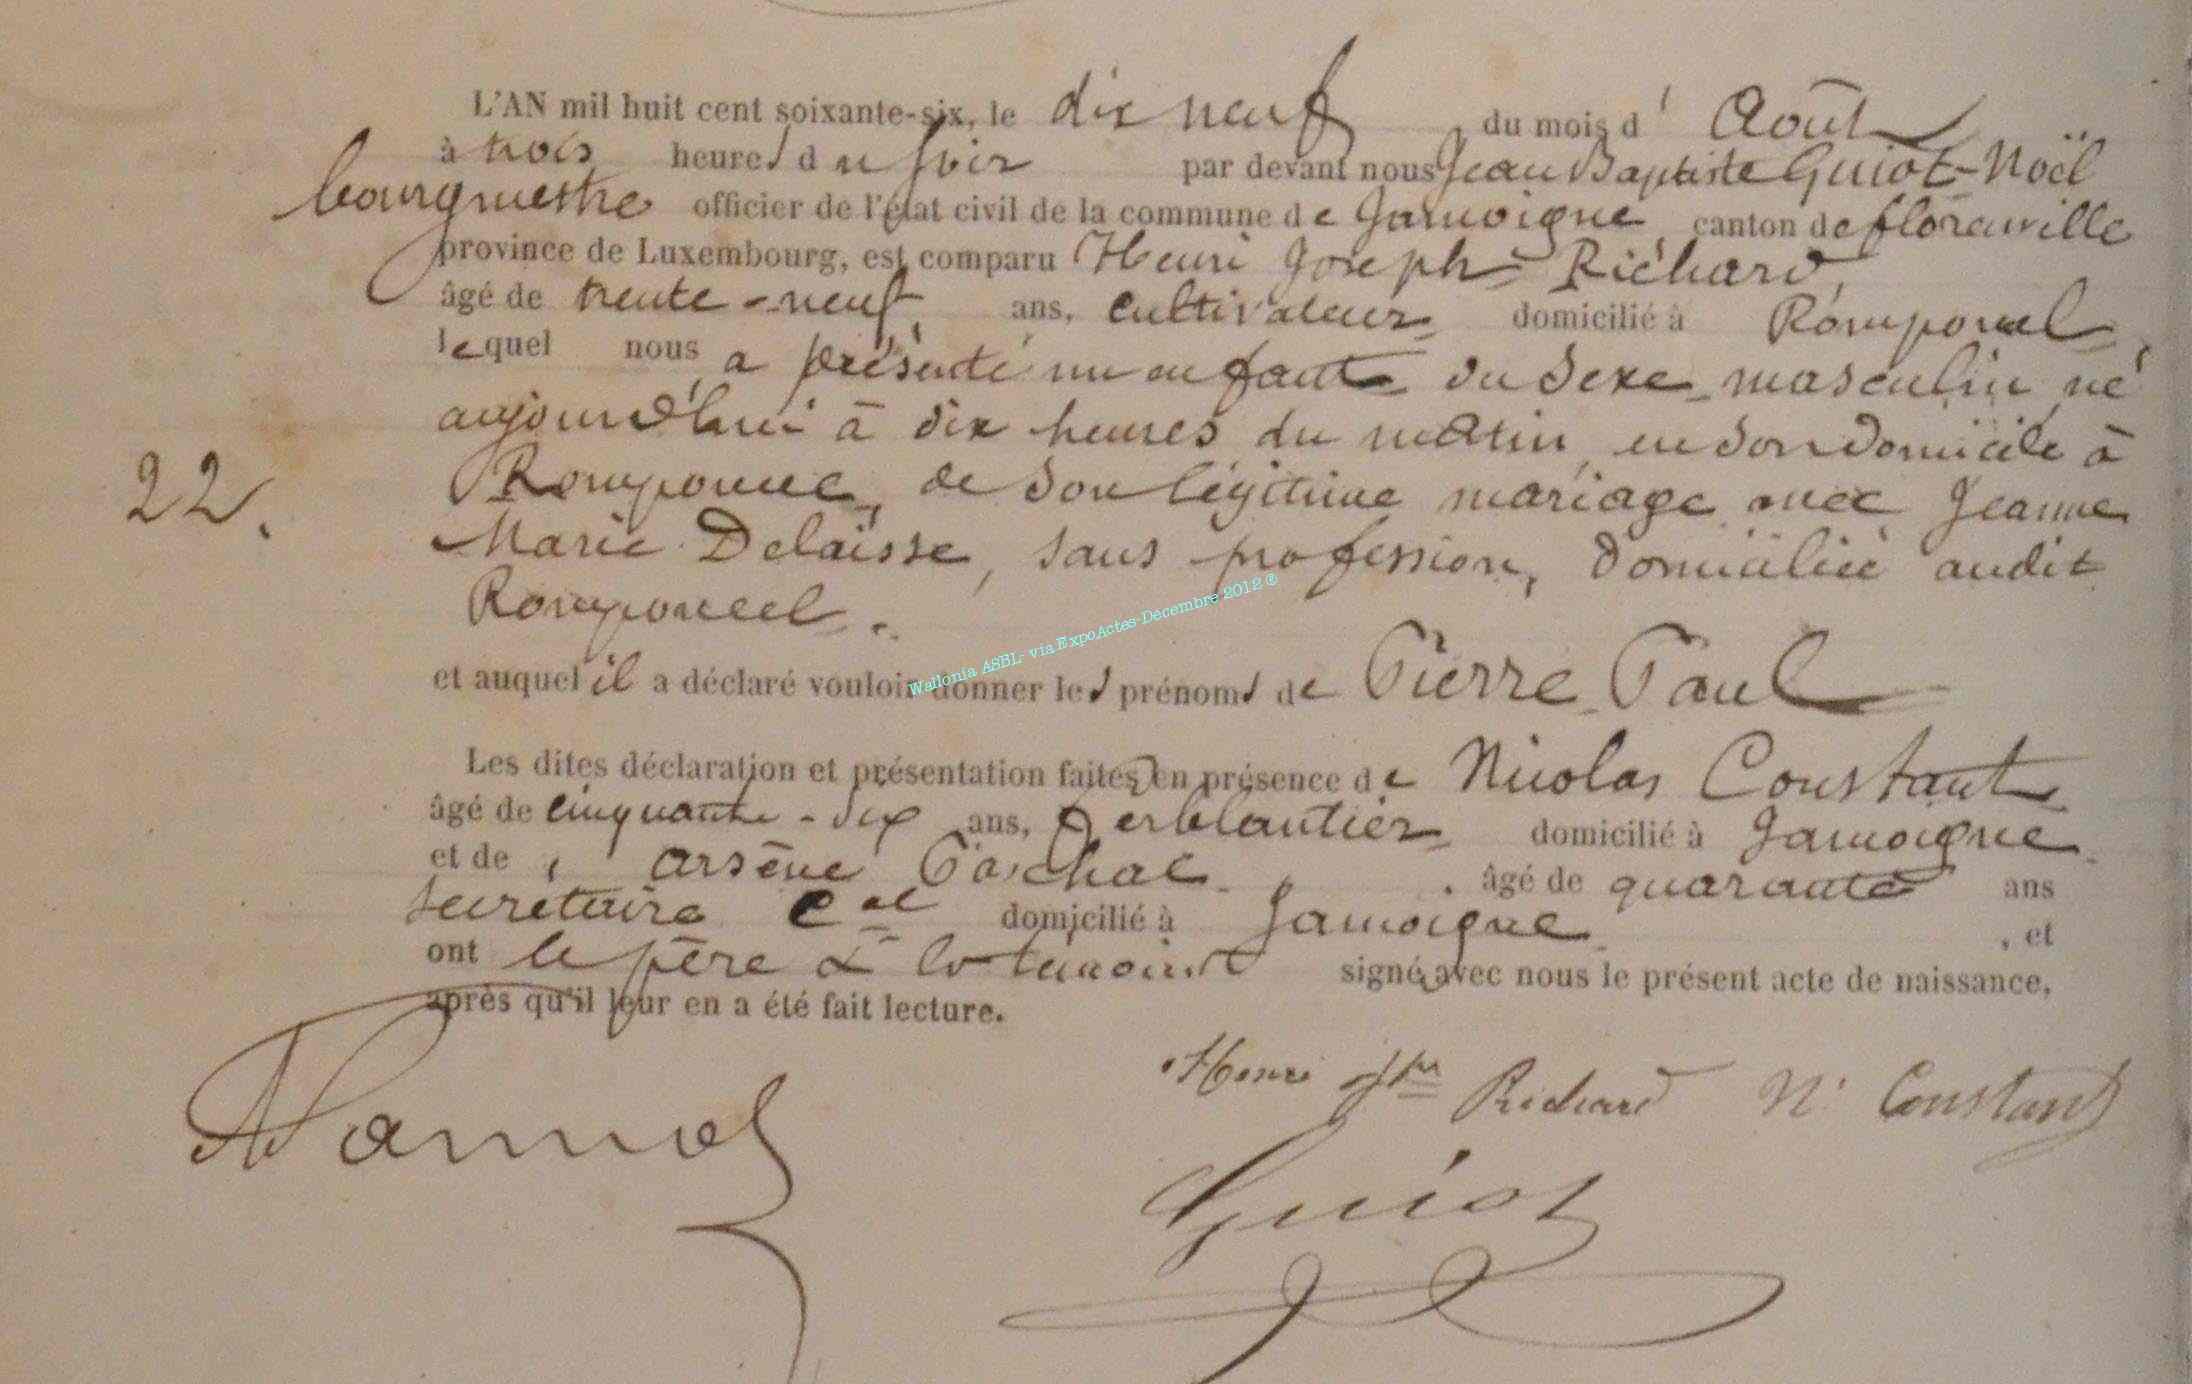 L'AN mil huit cent soixante-six, le dix neuf du mois d' Août
à trois heures du soir par devant nous Jean Baptiste Guiot-Noël
bourgmestre officier de l'état civil de la commune de Jamoigne canton de florenville
province de Luxembourg, est comparu Henri Joseph Richard,
âgé de trente-neuf ans, cultivateur domicilié à Romponcel,
lequel nous a présenté un enfant du sexe masculin, né
aujourd'hui à dix heures du matin, en son domicile à
22. de son légitime mariage avec Jeanne
Marie Delaisse, sans profession, domiciliée audit
Romponcel.
et auquel il a déclaré vouloir donner les prénoms de Pierre Paul
Les dites déclaration et présentation faites en présence de Nicolas Constant
âgé de cinquante-six ans, ferblantier domicilié à Jamoigne
et de arsène . âgé de quarante ans
secrétaire cal domicilié à Jamoigne , et
ont le père & les témoins signé avec nous le présent acte de naissance,
après qu'il leur en a été fait lecture.
Henri Jph Richard N. Constant
Guiot
Wallonia ASBL- via ExpoActes-Décembre 2012 ®